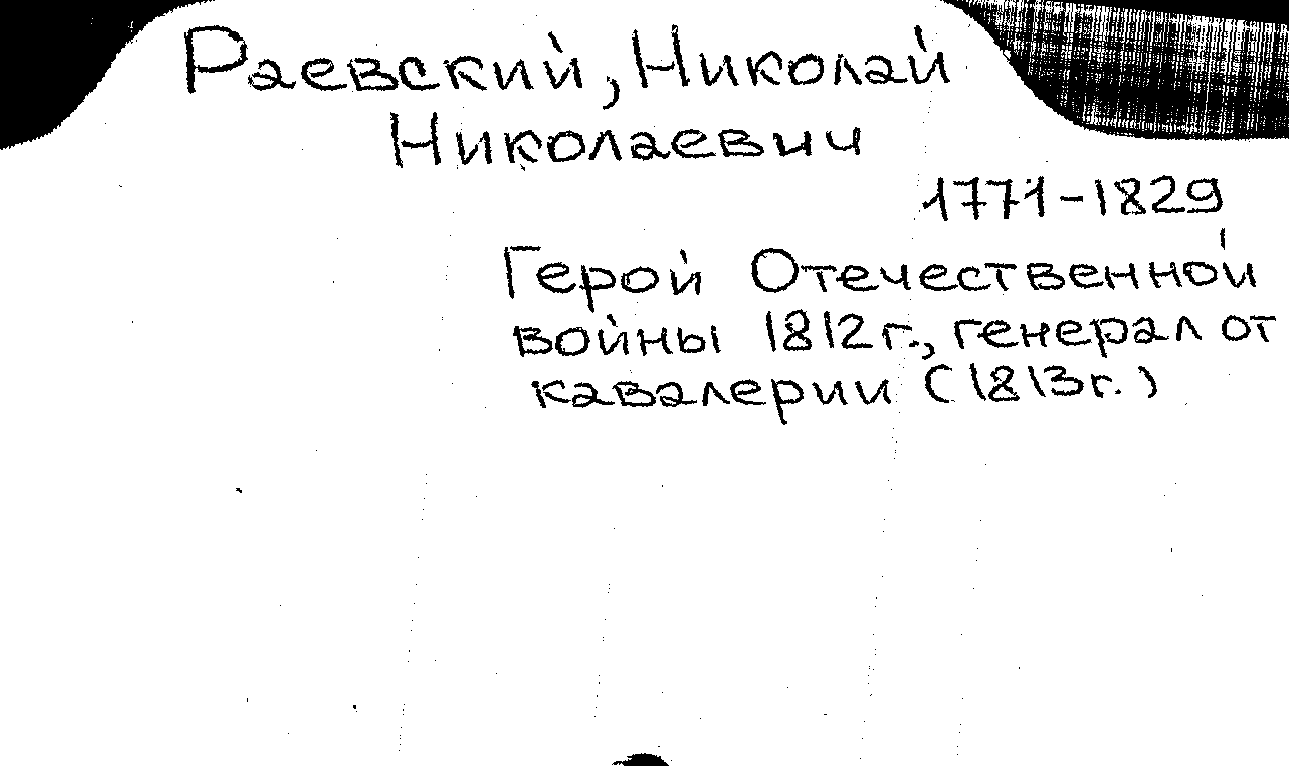 Раевский, Николай
Николаевич
1771-1829
Герой Отечественной
войны 1812 г., генерал от
кавалерии (1813 г.)